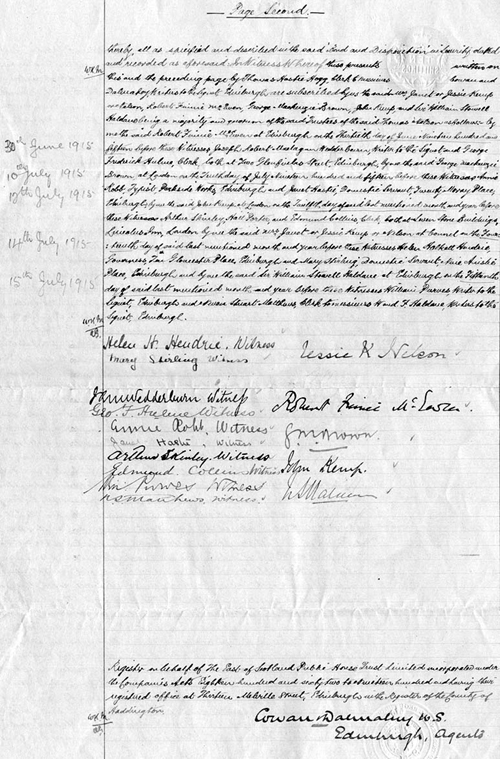 Page Second.
hereby, all as specified and described in the said Bond and Disposition in Security dated
and recorded as aforesaid In Witness Whereof these presents written on
this and the preceding page by Thomas Hogg, Clerk to Messieurs Cowan and
Dalmahoy Writers to the Signet Edinburgh are subscribed by us the said Mrs Janet or Jessie Kemp
or Nelson, Robert Finnie McEwen, George Mackenzie Brown, John Kemp and Sir William Stowell
Haldane being a majority and quorum of the said Trustees of the said Thomas Nelson as follows: by
me the said Robert Finnie McEwen at Edinburgh on the Thirtieth day of June Nineteen hundred and
fifteen before these Witnesses Joseph Robert Wedderburn, Writer to the Signet and George
Frederick Hulme Clerk, both at Two Glenfinlas Street, Edinburgh, by me the said George Mackenzie
Brown, at London on the Tenth day of July Nineteen hundred and fifteen before these Witnesses Annie
Robb, Typist, Parkside Works, Edinburgh and Janet Hastie, Domestic Servant, Twenty Moray Place,
Edinburgh, by me the said John Kemp at London on the Twelfth day of said last mentioned month and year before
these Witnesses Arthur Skinley and Edmund Collins, Clerk both at Seven Stone Buildings,
Lincolns Inn, London by me the said Mrs Janet or Jessie Kemp or Nelson at on the Four-
teenth day of said last mentioned month and year before these Witnesses Helen Hendrie,
Ten Gloucester Place, Edinburgh and Mary Stirling, Domestic Servant, Nine Ainslie
Place, Edinburgh and by me the said Sir William Stowell Haldane at Edinburgh on the Fifteenth
day of said last mentioned month and year before these Witnesses William Purves Writer to the
Signet, Edinburgh and Stuart Matthews, Clerk to Messieurs W and F Haldane, Writers to the
Signet, Edinburgh.
30th June 1915
10th July 1915
12th July 1915
14th July 1915
15th July 1915
Helen N. Hendrie, Witness
Mary Stirling Witness
Jessie K Nelson
J. R. M. Wedderburn Witness
Geo. F. Hulme Witness
Robert Finnie McEwen
Annie Robb, Witness
Janet Hastie, Witness
G M Brown
Arthur Skinley. Witness
Edmund Collins Witness
John Kemp.
Wm Purves Witness
Matthews, Witness
W S Haldane
Register on behalf of The East of Scotland Public House Trust Limited incorporated under
the Companies Acts Eighteen hundred and sixty two to nineteen hundred and having their
registered office at Thirteen Melville Street, Edinburgh in the Register of the County of
Haddington
Cowan & Dalmahoy W.S.
Edinburgh, Agents